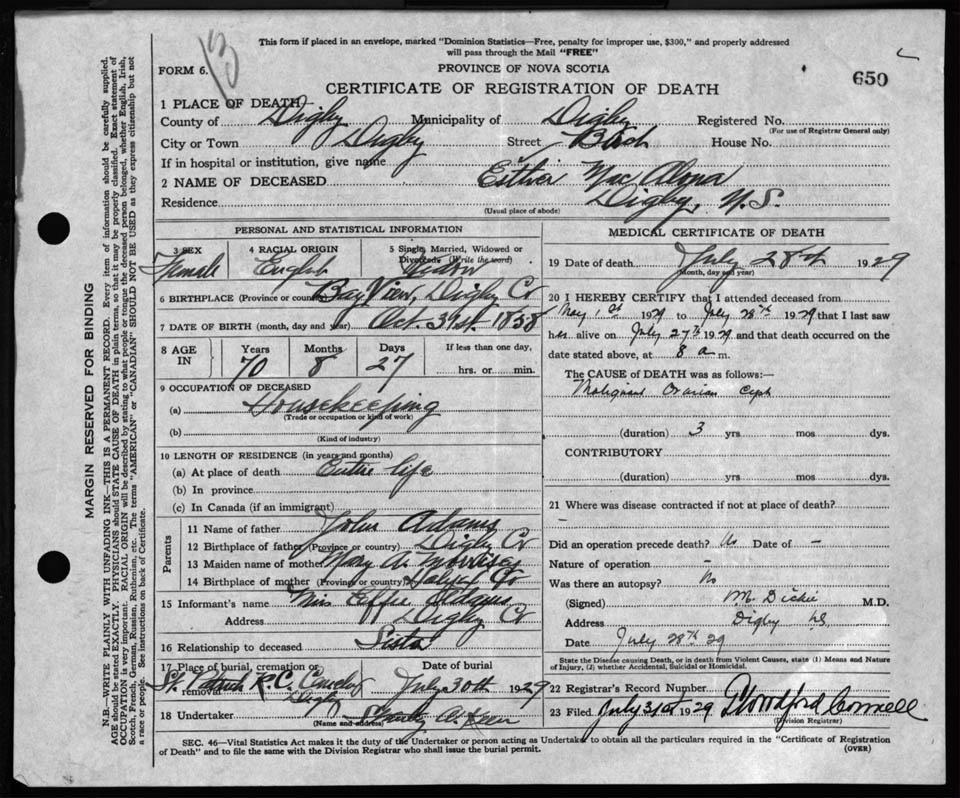 13
This form if placed in an envelope, marked "Dominion Statistics—Free, penalty for improper use, $300," and properly addressed
will pass through the Mail "FREE"
FORM 6.
PROVINCE OF NOVA SCOTIA
650
CERTIFICATE OF REGISTRATION OF DEATH
1 PLACE OF DEATH
County of Digby Municipality of Digby Registered No.
(For use of Registrar General only)
City or Town Digby Street Birch House No.
If in hospital or institution, give name
2 NAME OF DECEASED Esther Mac Alona
Residence Digby, N.S.
(Usual place of abode)
PERSONAL AND STATISTICAL INFORMATION
3 SEX Female
4 RACIAL ORIGIN English
5 Single, Married, Widowed or Divorced (Write the word) Widow
6 BIRTHPLACE (Province or country) Bay View, Digby Co
7 DATE OF BIRTH (month, day and year) Oct. 31st. 1858
8 AGE IN
Years 70 Months 8 Days 27 If less than one day,
hrs. or min.
9 OCCUPATION OF DECEASED
(a) Housekeeping
(Trade or occupation or kind of work)
(b)
(Kind of industry)
10 LENGTH OF RESIDENCE (in years and months)
(a) At place of death Entire life
(b) In province
(c) In Canada (if an immigrant)
Parents
11 Name of father John Adams
12 Birthplace of father (Province or country) Digby Co
13 Maiden name of mother Mary A. Morrisey
14 Birthplace of mother (Province or country) Halifax Co
15 Informant's name Miss Effie Adams
Address Digby Co
16 Relationship to deceased Sister
17 Place of burial, cremation or removal St. Patrick R.C. Cemetery Digby
Date of burial July 30th 1929
18 Undertaker
(Name and address)
MEDICAL CERTIFICATE OF DEATH
19 Date of death July 28th 1929
(Month, day and year)
20 I HEREBY CERTIFY that I attended deceased from
May 1st 1929 to July 28th 1929 that I last saw
her alive on July 27th 1929 and that death occurred on the
date stated above, at 8 a m.
The CAUSE of DEATH was as follows:—
Malignant Ovarian Cyst
(duration) 3 yrs mos dys.
CONTRIBUTORY
(duration) yrs mos dys.
21 Where was disease contracted if not at place of death?
—
Did an operation precede death? No Date of —
Nature of operation —
Was there an autopsy? No
(Signed) M. Dickie M.D.
Address Digby NS
Date July 28th 29
State the Disease causing Death, or in death from Violent Causes, state (1) Means and Nature
of Injury, (2) whether Accidental, Suicidal or Homicidal.
22 Registrar's Record Number
23 Filed July 31st 1929
(Division Registrar)
SEC. 46—Vital Statistics Act makes it the duty of the Undertaker or person acting as Undertaker to obtain all the particulars required in the "Certificate of Registration
of Death" and to file the same with the Division Registrar who shall issue the burial permit.
(OVER)
MARGIN RESERVED FOR BINDING
N.B.—WRITE PLAINLY WITH UNFADING INK—THIS IS A PERMANENT RECORD. Every item of information should be carefully supplied.
AGE should be stated EXACTLY. PHYSICIANS should STATE CAUSE OF DEATH in plain terms, so that it may be properly classified. Exact statement of
OCCUPATION is very important. RACIAL ORIGIN will be described by stating to what people or tongue the deceased person belonged, whether English, Irish,
Scotch, French, German, Russian, Ruthenian, etc. The terms "AMERICAN" or "CANADIAN" SHOULD NOT BE USED as they express citizenship but not
a race or people. See instructions on back of Certificate.